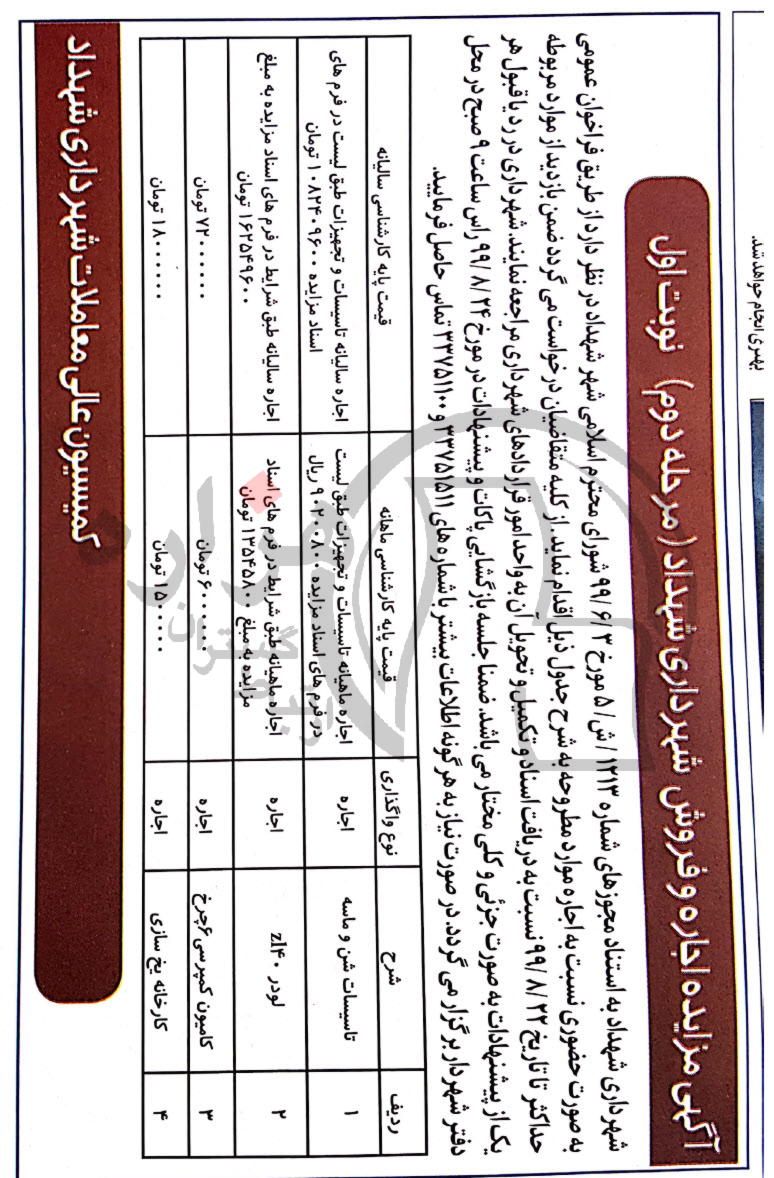 بهتری انجام خواهد شد.
آگهی مزایده اجاره و فروش شهرداری شهداد (مرحله دوم) نوبت اول
شهرداری شهداد به استناد مجوزهای شماره ۱۲۱۳ / ش/ ۵ مورخ ۹۹/۶/۳ شورای محترم اسلامی شهر شهداد در نظر دارد از طریق فراخوان عمومی
به صورت حضوری نسبت به اجاره موارد مطروحه به شرح جدول ذیل اقدام نماید. از کلیه متقاضیان درخواست می گردد ضمن بازدید از موارد مربوطه
حداکثر تا تاریخ ۹۹/۸/۲۲ نسبت به دریافت اسناد و تکمیل و تحویل آن به واحد امور قراردادهای شهرداری مراجعه نمایند. شهرداری در رد یا قبول هر
یک از پیشنهادات به صورت جزئی و کلی مختار می باشد. ضمنا جلسه بازگشایی پاکات و پیشنهادات در مورخ ۹۹/۸/۲۴ راس ساعت ۹ صبح در محل
دفتر شهردار برگزار می گردد. در صورت نیاز به هر گونه اطلاعات بیشتر با شماره های ۳۳۷۵۱۵۱۱ و ۳۳۷۵۱۱۰۰ تماس حاصل فرمایید.
ردیف شرح نوع واگذاری قیمت پایه کارشناسی ماهانه قیمت پایه کارشناسی سالیانه
۱ تاسیسات شن و ماسه اجاره اجاره ماهیانه تاسیسات و تجهیزات طبق لیست در فرم های اسناد مزایده ۹۰۲۰۰۸۰۰ ریال اجاره سالیانه تاسیسات و تجهیزات طبق لیست در فرم های اسناد مزایده ۱۰۸۲۴۰۹۶۰۰ تومان
۲ لودر zl۴۰ اجاره اجاره ماهیانه طبق شرایط در فرم های اسناد مزایده به مبلغ ۱۳۵۴۵۸۰۰ تومان اجاره سالیانه طبق شرایط در فرم های اسناد مزایده به مبلغ ۱۶۲۵۴۹۶۰۰ تومان
۳ کامیون کمپرسی ۶چرخ اجاره ۶۰۰۰۰۰۰ تومان ۷۲۰۰۰۰۰۰ تومان
۴ کارخانه یخ سازی اجاره ۱۵۰۰۰۰۰ تومان ۱۸۰۰۰۰۰۰ تومان
کمیسیون عالی معاملات شهرداری شهداد